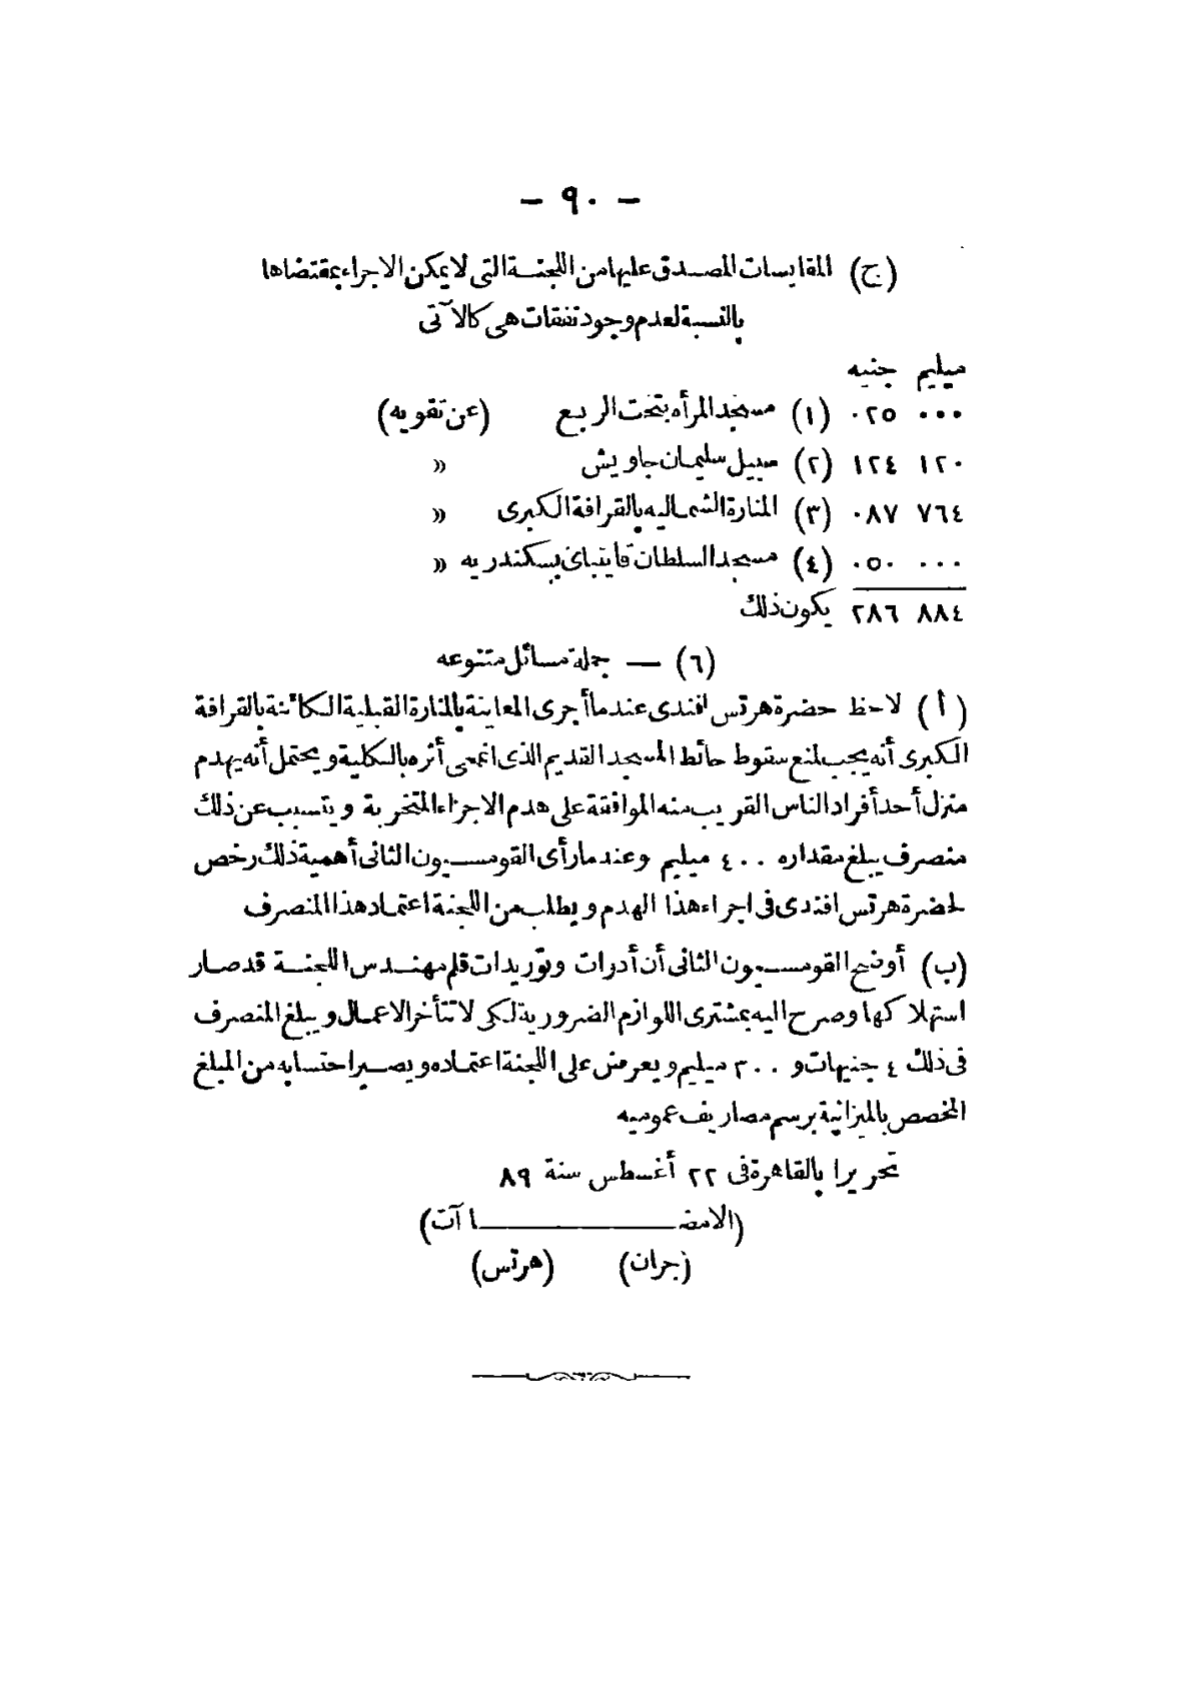 — ٩٠ —
(ج) المقايسات المصدق عليها من اللجنة التى لا يمكن الاجراء بمقتضاها
بالنسبة لعدم وجود نفقات هى كالآتى
ميليم جنيه
٠٠٠ ٠٢٥ (١) مسجد المرأه بتحت الربع (عن تقويه)
١٢٠ ١٢٤ (٢) سبيل سليمان جاويش »
٧٦٤ ٠٨٧ (٣) المنارة الشماليه بالقرافة الكبرى »
٠٠٠ ٠٥٠ (٤) مسجد السلطان قايتباى بسكندريه »
٨٨٤ ٢٨٦ يكون ذلك
(٦) — جملة مسائل متنوعه
(أ) لاحظ حضرة هرتس افندى عندما أجرى المعاينة بالمنارة القبلية الكائنة بالقرافة
الكبرى أنه يجب لمنع سقوط حائط المسجد القديم الذى انمعى أثره بالكلية ويحتمل أنه يهدم
منزل أحد أفراد الناس القريب منه الموافقة على هدم الاجزاء المتخربة ويتسبب عن ذلك
منصرف يبلغ مقداره ٤٠٠ ميليم وعندما رأى القومسيون الثانى أهمية ذلك رخص
لحضرة هرتس افندى فى اجراء هذا الهدم ويطلب من اللجنة اعتماد هذا المنصرف
(ب) أوضح القومسيون الثانى أن أدوات وتوريدات قلم مهندس اللجنة قد صار
استهلاكها وصرح اليه بمشترى اللوازم الضرورية لكى لا تتأخر الاعمال ويبلغ المنصرف
فى ذلك ٤ جنيهات و ٣٠٠ ميليم ويعرض على اللجنة اعتماده ويصير احتسابه من المبلغ
المخصص بالميزانية برسم مصاريف عموميه
تحريرا بالقاهرة فى ٢٢ أغسطس سنة ٨٩
(الامضـــاآت)
(جران) (هرتس)